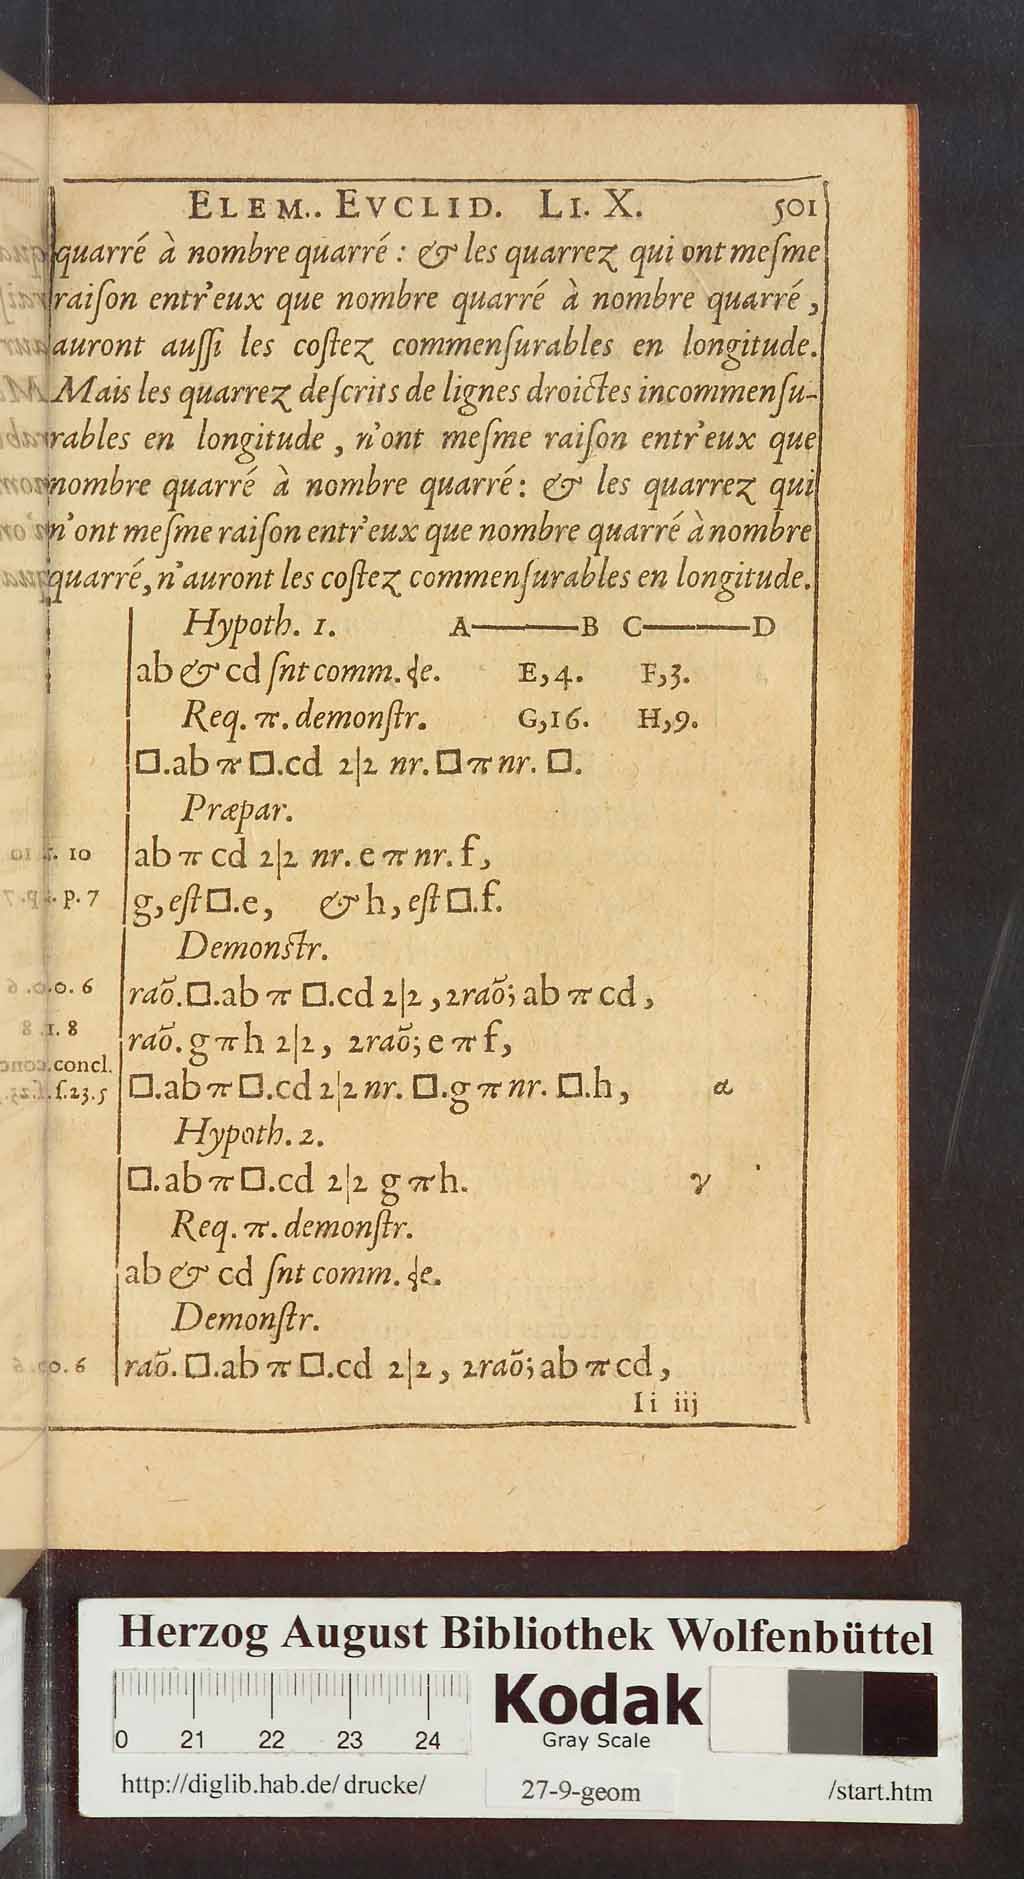 ELEM.. EVCLID. LI. X. 501
quarré à nombre quarré : & les quarrez qui ont meſme
raiſon entr'eux que nombre quarré à nombre quarré ,
auront auſſi les coſtez commenſurables en longitude.
Mais les quarrez deſcrits de lignes droictes incommenſu-
rables en longitude , n'ont meſme raiſon entr'eux que
nombre quarré à nombre quarré: & les quarrez qui
n'ont meſme raiſon entr'eux que nombre quarré à nombre
quarré, n'auront les coſtez commenſurables en longitude.
Hypoth. 1. A——B C——D
ab & cd ſnt comm. E,4. F,3.
Req. π. demonſtr. G,16. H,9.
□.ab π □.cd 2|2 nr. □ π nr. □.
Præpar.
10 ab π cd 2|2 nr. e π nr. f,
p. 7 g, eſt □.e, & h, eſt □.f.
Demonſtr.
0. 6 raõ. □.ab π □.cd 2|2, 2raõ; ab π cd,
1. 8 raõ. g π h 2|2, 2raõ; e π f,
concl.
ſ.23.5 □.ab π □.cd 2|2 nr. □.g π nr. □.h, α
Hypoth. 2.
□.ab π □.cd 2|2 g π h. γ
Req. π. demonſtr.
ab & cd ſnt comm.
Demonſtr.
0. 6 raõ. □.ab π □.cd 2|2, 2raõ; ab π cd,
Ii iij
Herzog August Bibliothek Wolfenbüttel
0 21 22 23 24
Kodak
Gray Scale
http://diglib.hab.de/ drucke/ 27-9-geom /start.htm